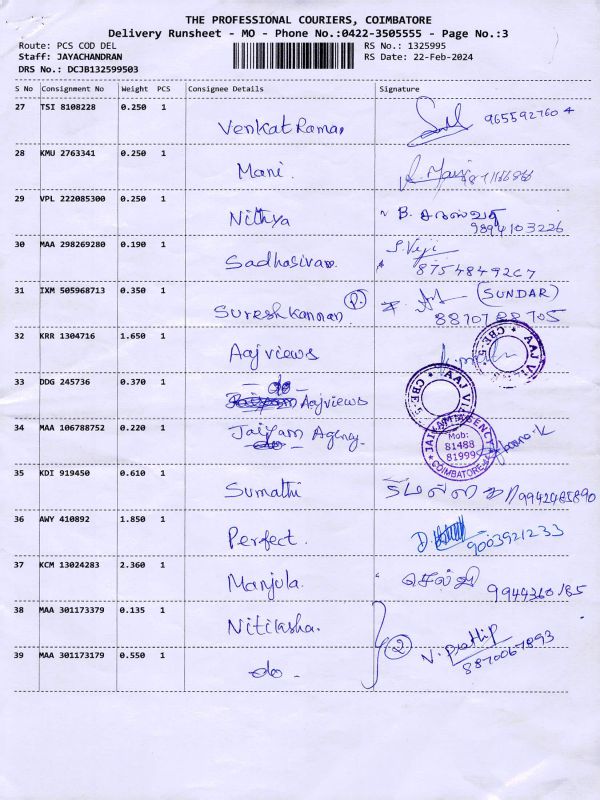 THE PROFESSIONAL COURIERS, COIMBATORE
Delivery Runsheet - MO - Phone No.:0422-3505555 - Page No.:3
Route: PCS COD DEL
RS No.: 1325995
Staff: JAYACHANDRAN
RS Date: 22-Feb-2024
DRS No.: DCJB132599503
S No Consignment No Weight PCS Consignee Details Signature
27 TSI 8108228 0.250 1 Venkat Raman 9655927604
28 KMU 2763341 0.250 1 Mani.
29 VPL 222085300 0.250 1 Nithya B. 9894103226
30 MAA 298269280 0.190 1 Sadhasivam. S. Viji
8754849267
31 IXM 505968713 0.350 1 Suresh Kannan (SUNDAR)
8870788705
32 KRR 1304716 1.650 1 Aajviews
AAJ VI
CBE-5
33 DDG 245736 0.370 1 do
Aajviews
AAJ VI
CBE-5
34 MAA 106788752 0.220 1 Jaiyam Agency.
do
AGENCY
Mob:
81488
81999
COIMBATORE
35 KDI 919450 0.610 1 Sumathi
36 AWY 410892 1.850 1 Perfect. D. 9003921233
37 KCM 13024283 2.360 1 Manjula. செல்வி 9944360185
38 MAA 301173379 0.135 1 Nitilasha.
2 N. Prathip
8870067893
39 MAA 301173179 0.550 1 do -